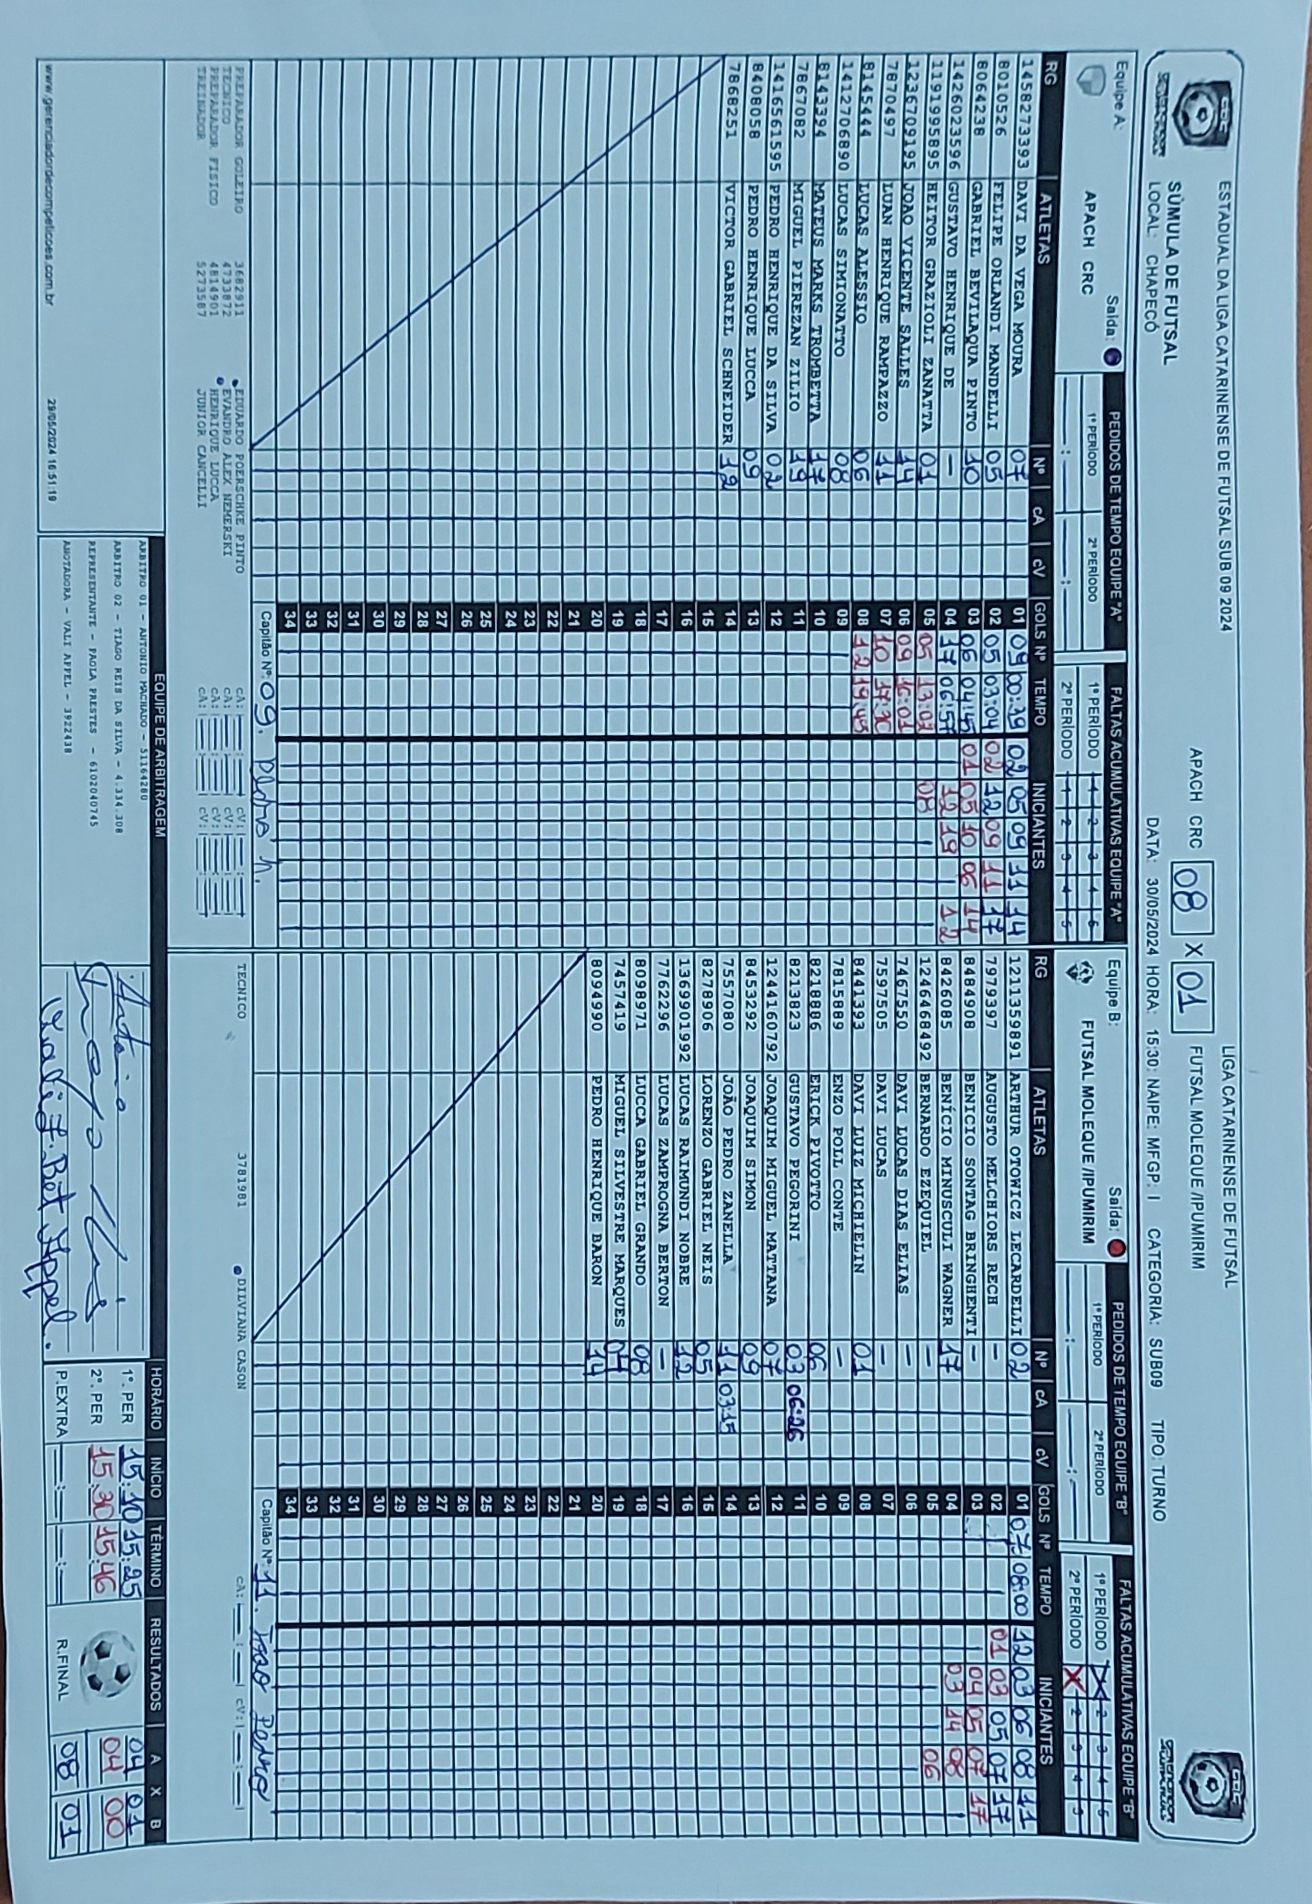 ESTADUAL DA LIGA CATARINENSE DE FUTSAL SUB 09 2024
LIGA CATARINENSE DE FUTSAL
SÚMULA DE FUTSAL
APACH CRC 08 X 01 FUTSAL MOLEQUE /IPUMIRIM
LOCAL: CHAPECÓ
DATA: 30/05/2024 HORA: 15:30 NAIPE: MFGP: I CATEGORIA: SUB09 TIPO: TURNO
Equipe A:
APACH CRC
Saída:
PEDIDOS DE TEMPO EQUIPE "A"
1º PERÍODO 2º PERÍODO
FALTAS ACUMULATIVAS EQUIPE "A"
1º PERÍODO 1 2 3 4 5
2º PERÍODO 1 2 3 4 5
RG ATLETAS Nº cA cV GOLS Nº TEMPO INICIANTES
1458273393 DAVI DA VEGA MOURA 07 01 09 02 05 09 11 14
8010526 FELIPE ORLANDI MANDELLI 05 02 05 03:04 02 12 09 11 17
8064238 GABRIEL BEVILAQUA PINTO 10 03 06 04:45 01 05 10 06 14
14260235 96 GUSTAVO HENRIQUE DE — 04 17 06:57 12 19 12
11919995895 HEITOR GRAZIOLI ZANATTA 01 05 05 08
1236709195 JOAO VICENTE SALLES 14 06 09
7870497 LUAN HENRIQUE RAMPAZZO 11 07 10
8145444 LUCAS ALESSIO 06 08 12 19:45
14127068 90 LUCAS SIMIONATTO 08 09
8143394 MATEUS MARKS TROMBETTA 17 10
7867082 MIGUEL PIEREZAN ZILIO 19 11
14165615 95 PEDRO HENRIQUE DA SILVA 02 12
8408058 PEDRO HENRIQUE LUCCA 09 13
7868251 VICTOR GABRIEL SCHNEIDER 12 14
15
16
17
18
19
20
21
22
23
24
25
26
27
28
29
30
31
32
33
34
Capitão Nº: 09. Pedro h.
PREPARADOR GOLEIRO 3682911 EDUARDO POERSCHKE PINTO cA: cV:
TECNICO 4733872 EVANDRO ALEX NEMERSKI cA: cV:
PREPARADOR FISICO 4814901 HENRIQUE LUCCA cA: cV:
TREINADOR 5273587 JUNIOR CANCELLI cA: cV:
Equipe B:
FUTSAL MOLEQUE /IPUMIRIM
Saída:
PEDIDOS DE TEMPO EQUIPE "B"
1º PERÍODO 2º PERÍODO
FALTAS ACUMULATIVAS EQUIPE "B"
1º PERÍODO 2 3 4 5
2º PERÍODO 2 3 4 5
RG ATLETAS Nº cA cV GOLS Nº TEMPO INICIANTES
12113598 91 ARTHUR OTOWICZ LECARDELLI 02 01 07 08:00 12 03 06 08 11
7979397 AUGUSTO MELCHIORS RECH — 02 01 03 05 07 17
8484908 BENICIO SONTAG BRINGHENTI — 03 04 05 07 17
8426085 BENÍCIO MINUSCULI WAGNER 17 04 03 14 08
12464684 92 BERNARDO EZEQUIEL — 05 06
7467550 DAVI LUCAS DIAS ELIAS — 06
7597505 DAVI LUCAS — 07
8441393 DAVI LUIZ MICHIELIN 01 08
7815889 ENZO POLL CONTE — 09
8218886 ERICK PIVOTTO 06 10
8213823 GUSTAVO PEGORINI 03 06:26 11
12441607 92 JOAQUIM MIGUEL MATTANA 07 12
8453292 JOAQUIM SIMON 09 13
7557080 JOÃO PEDRO ZANELLA 11 03:15 14
8278906 LORENZO GABRIEL NEIS 05 15
13699019 92 LUCAS RAIMUNDI NOBRE 12 16
7762296 LUCAS ZAMPROGNA BERTON — 17
8098971 LUCCA GABRIEL GRANDO 08 18
7457419 MIGUEL SILVESTRE MARQUES 04 19
8094990 PEDRO HENRIQUE BARON 14 20
21
22
23
24
25
26
27
28
29
30
31
32
33
34
Capitão Nº: 11. João Pedro
TECNICO 3781981 DILVIANA CASON cA: cV:
EQUIPE DE ARBITRAGEM
ARBITRO 01 - ANTONIO MACHADO - 51164280
ARBITRO 02 - TIAGO REIS DA SILVA - 4.334.308
REPRESENTANTE - PAOLA PRESTES - 6102040745
ANOTADORA - VALI APPEL - 3922438
HORÁRIO INÍCIO TÉRMINO RESULTADOS A X B
1º. PER 15:10 15:25 04 01
2º. PER 15:30 15:46 04 00
P.EXTRA R.FINAL 08 01
www.gerenciadordecompeticoes.com.br
29/05/2024 16:51:19